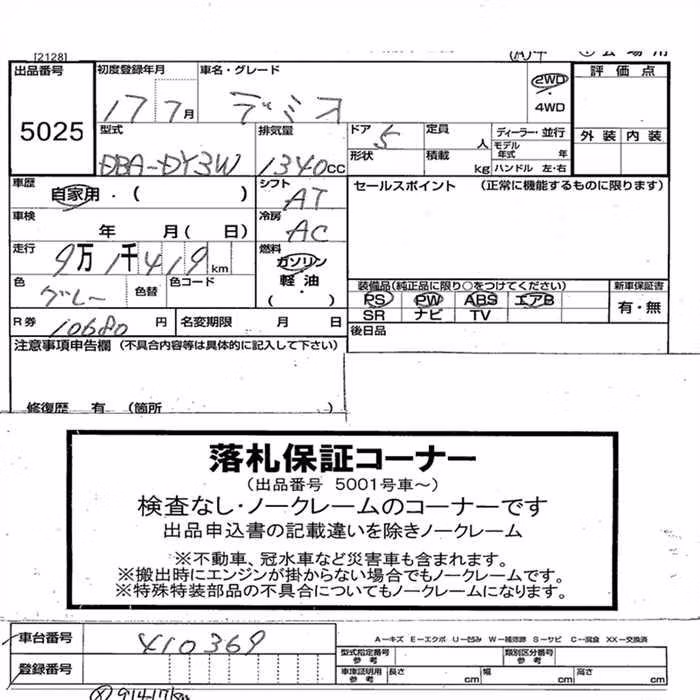 [2128]
出品番号 5025
初度登録年月 17 7月
車名・グレード デミオ
2WD
4WD
評価点
外装 内装
型式 DBA-DY3W
排気量 1340cc
ドア 5
形状
定員 人
積載 kg
ディーラー・並行
モデル年式 年
ハンドル 左・右
車歴 自家用・( )
シフト AT
セールスポイント (正常に機能するものに限ります)
車検 年 月( 日)
冷房 AC
走行 9万1千419km
燃料 ガソリン
軽油
( ・ )
色 グレー
色替
色コード
装備品(純正品に限り○をつけてください)
PS PW ABS エアB
SR ナビ TV
新車保証書
有・無
R券 10680円
名変期限 月 日
後日品
注意事項申告欄 (不具合内容等は具体的に記入して下さい)
修復歴 有 (箇所 )
落札保証コーナー
(出品番号 5001号車~)
検査なし・ノークレームのコーナーです
出品申込書の記載違いを除きノークレーム
※不動車、冠水車など災害車も含まれます。
※搬出時にエンジンが掛からない場合でもノークレームです。
※特殊特装部品の不具合についてもノークレームになります。
車台番号 410369
A-キズ E-エクボ U-凹み W-補修跡 S-サビ C-腐食 XX-交換済
登録番号
型式指定番号 参考
類別区分番号 参考
車庫証明用 参考
長さ cm
幅 cm
高さ cm